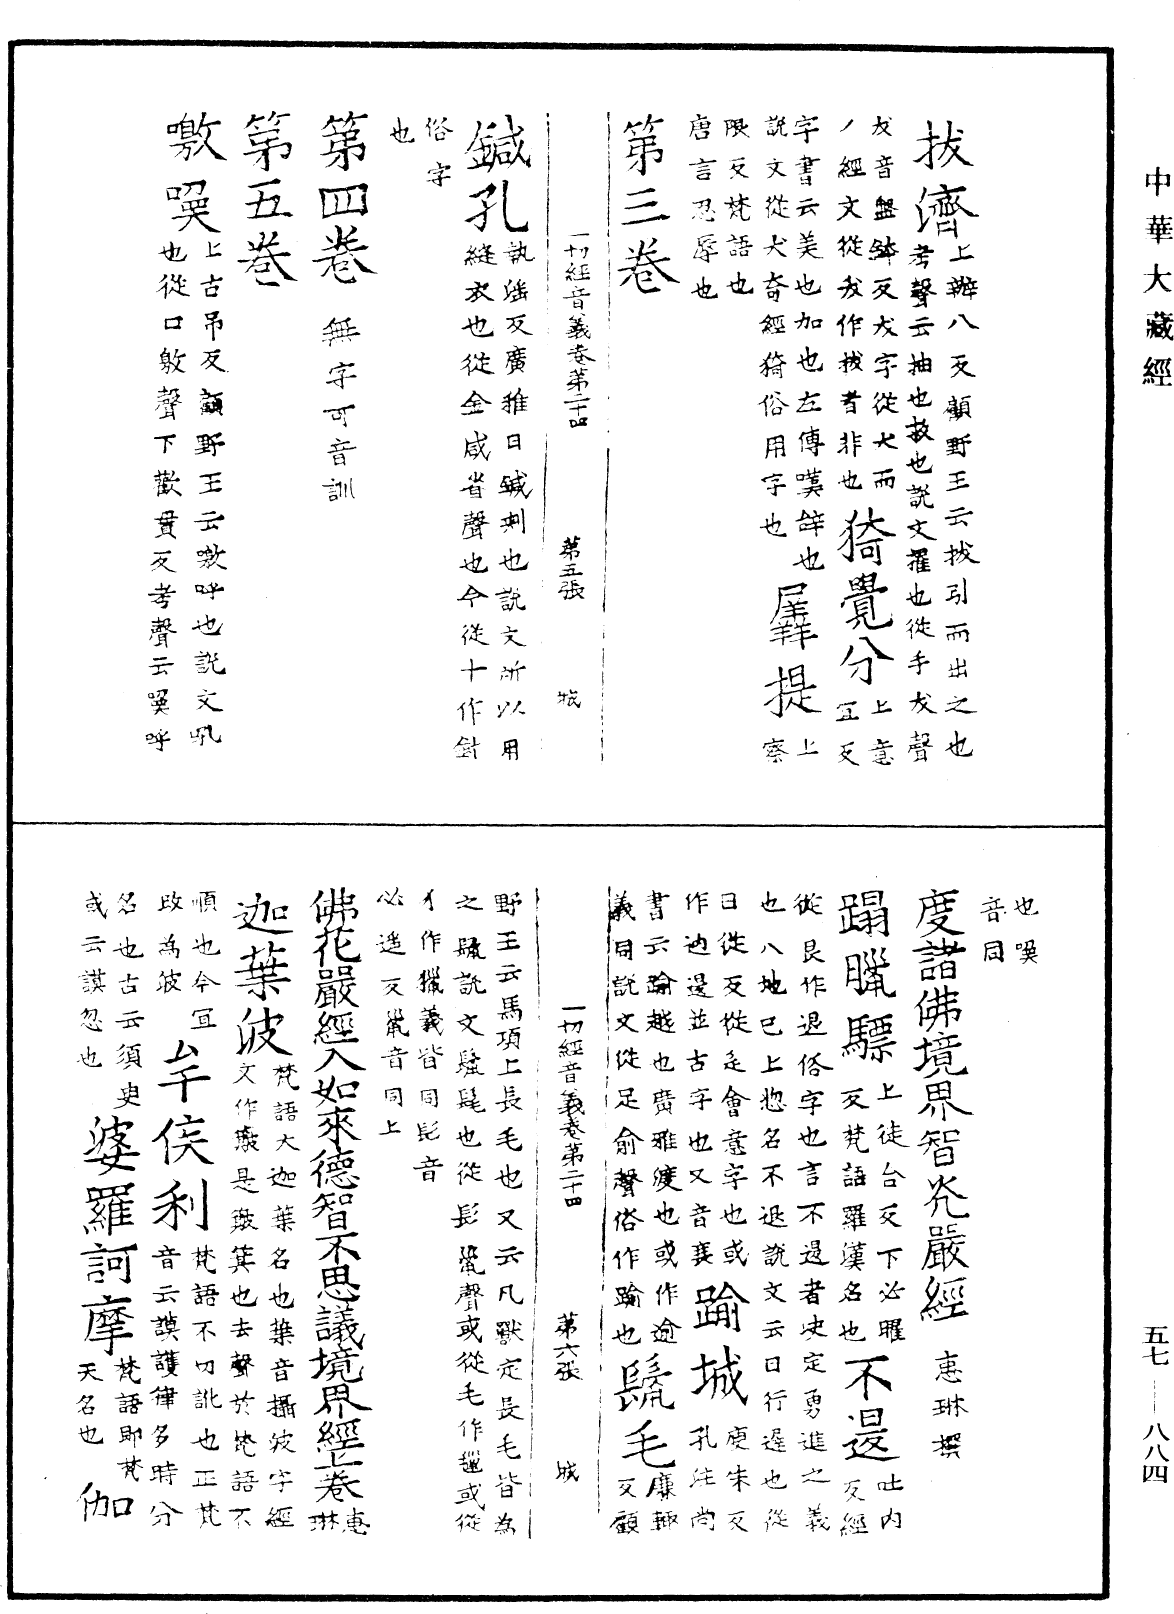 中華大藏經
拔濟上辦八反顧野王云拔引而出之也
考聲云抽也救也說文擢也從手犮聲
犮音盤鉢反犮字從犬而
丿經文從犮作拔者非也猗覺分上意
宜反
字書云美也加也左傳嘆辭也
說文從犬奇經猗俗用字也羼提上
察
限反梵語也
唐言忍辱也
第三卷
一切經音義卷第二十四 第五張 城
鍼孔執滛反廣雅曰鍼刺也說文所以用
縫衣也從金咸省聲也今從十作針
俗字
也
第四卷 無字可音訓
第五卷
噭㗛上古吊反顧野王云噭呼也說文吼
也從口敫聲下歡貫反考聲云㗛呼
也㗛
音同
度諸佛境界智光嚴經 惠琳撰
蹋臘驃上徒台反下必曜
反梵語羅漢名也不退吐內
反經
從艮作退俗字也言不退者決定勇進之義
也八地已上惣名不退說文云日行遲也從
日從夊從辵會意字也或
作迌退並古字也又音襄踰城庾朱反
孔注尚
書云踰越也廣雅渡也或作逾
義同說文從足俞聲俗作踰也鬣毛廉輒
反顧
一切經音義卷第二十四 第六張 城
野王云馬項上長毛也又云凡獸定長毛皆為
之鬣說文髮髦也從髟巤聲或從毛作氎或從
犭作獵義皆同髟音
必遥反巤音同上
佛花嚴經入如來德智不思議境界經上卷惠
琳
迦葉波梵語大迦葉名也葉音攝波字經
文作簸是簸箕也去聲於梵語不
順也今宜
改為波牟侯利梵語不切訛也正梵
音云謨護律多時分
名也古云須臾
或云謨忽也婆羅訶摩梵語即梵
天名也伽
五七——八八四